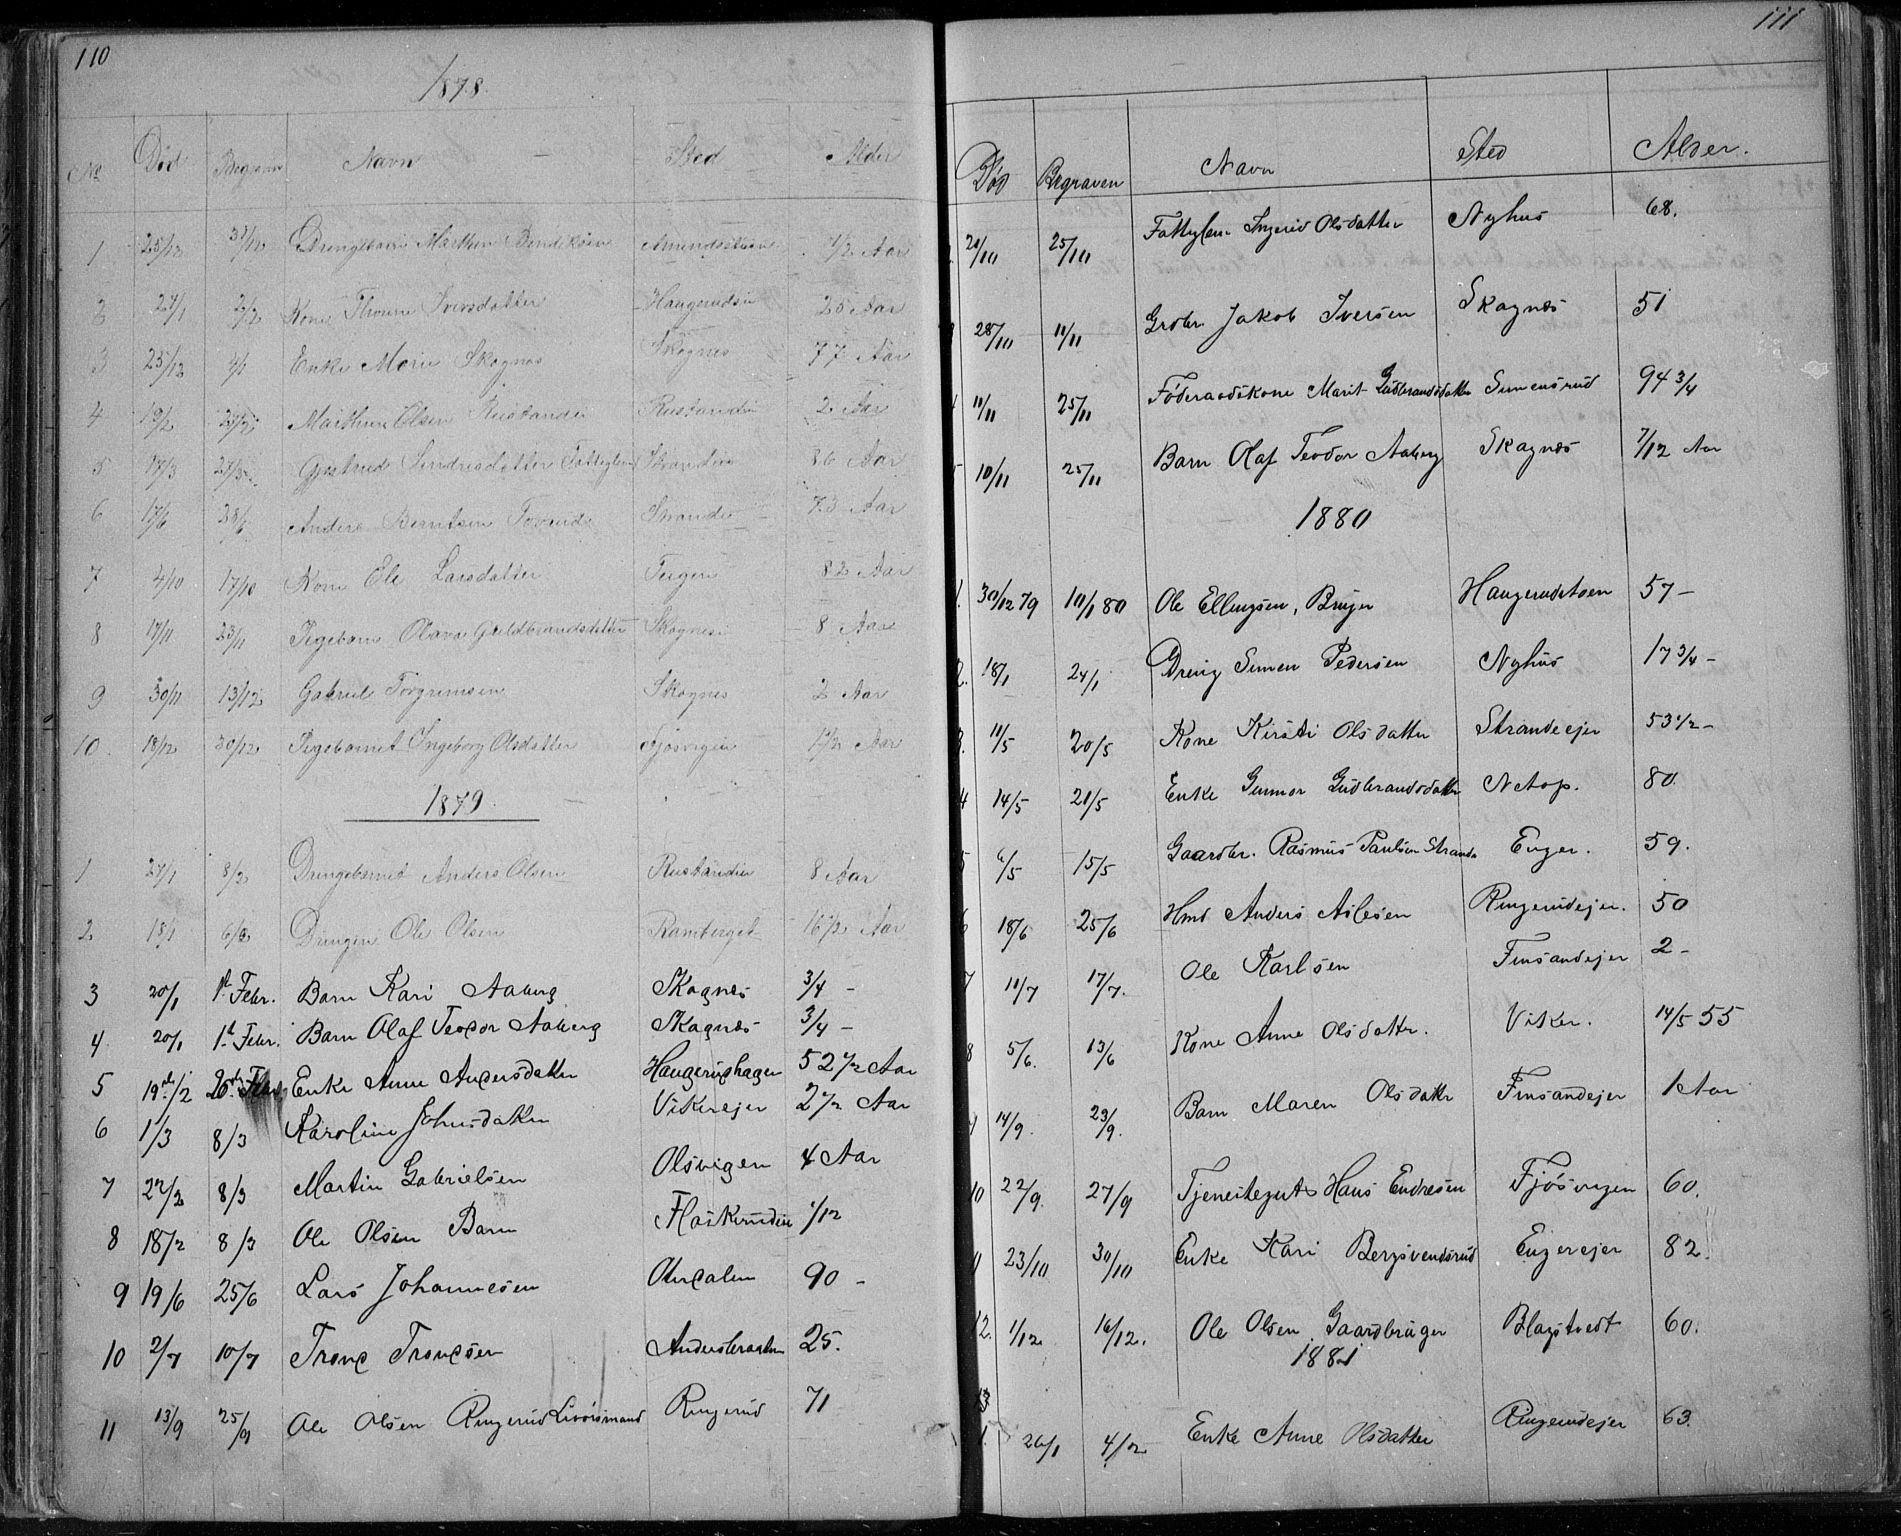 110
1878.
No Død Begraven Navn Sted Alder
1 25/12 31/12 Drengebarn Marthin Bendiksen 1/2 Aar
2 24/1 2/2 Kone Thorine Iversdatter Haugerudsei 25 Aar
3 23/12 4/1 Enke Marie Skognes Skognes 77 Aar
4 19/2 Marthin Olsen Rustandei Rustandei 2 Aar
5 17/3 27/3 Gjertrud Sindresdatter Fattiglem Strandei 86 Aar
6 17/6 23/6 Anders Berntsen Strande 73 Aar
7 4/10 17/10 Kone Eli Larsdatter 82 Aar
8 17/11 23/11 Pigebarn Olava Guldbrandsdatter Skognes 8 Aar
9 30/11 13/12 Gabriel Torgrimsen Skognes 2 Aar
10 18/12 30/12 Pigebarnet Ingeborg Olsdatter Fjøsvigen 1 1/2 Aar
1879.
1 27/1 8/2 Drengebarnet Anders Olsen Rustandei 8 Aar
2 18/1 6/2 Drengen Ole Olsen Ramberget 16 1/2 Aar
3 20/1 1st Febr. Barn Kari Aaberg Skagnæs 3/4 -
4 20/1 1st Febr. Barn Olaf Teodor Aaberg Skagnæs 3/4 -
5 19de/2 26de Febr Enke Anne Andersdatter Haugerudhagen 52 1/2 Aar
6 1/3 8/3 Karoline Johnsdatter Vikerejer 2 1/2 Aar
7 22/2 8/3 Martin Gabrielsen Olsvigen 4 Aar
8 18/2 8/3 Ole Olsen Barn Flaskerudei 1/12
9 19/6 25/6 Lars Johannesen Aamdalen 90 -
10 2/7 10/7 Trond Trondsen Andersbraaten 25.
11 13/9 25/9 Ole Olsen Ringerud Livørsmand Ringerud 71
111
Død Begraven Navn Sted Alder.
20/10 25/10 Fattiglem Ingerid Olsdatter Nyhus 68.
28/10 11/11 Grdbr. Jakob Iversen Skagnæs 51
11/11 25/11 Föderaadskone Marit Gudbrandsdatter Simensrud 94 3/4
5 10/11 25/11 Barn Olaf Teodor Aaberg Skagnæs 7/12 Aar
1880
1. 30/12 79 10/1 80 Ole Ellingsen, Bruger Haugerudstøen 57 -
2. 18/1 24/1 Dreng Simen Pedersen Nyhus 17 3/4 -
3. 11/5 20/5 Kone Kirsti Olsdatter Strandeejer 53 1/2 -
4 14/5 21/5 Enke Gunnor Gudbrandsdatter Netop. 80.
5 6/5 15/5 Gaardbr. Rasmus Paulsen Strande Enger. 59.
6 18/6 25/6 Hmd Anders Aslesen Ringerudejer. 50
7 11/7 17/7. Ole Karlsen Finsandejer 2 -
8 5/6. 13/6 Kone Anne Olsdattr. Viker. 14/5 55
9 14/9. 23/9. Barn Maren Olsdattr Finsandejer 1 Aar
10 22/9. 27/9 Tjenestegut Hans Endresen Fjösvigen 60.
11 23/10 30/10 Enke Kari Bergsvendsrud Engerejer 82.
12. 1/12 16/12. Ole Olsen Gaardbruger Blagstvedt 60.
1881
1. 26/1 4/2 Enke Anne Olsdatter Ringerudejer 63.